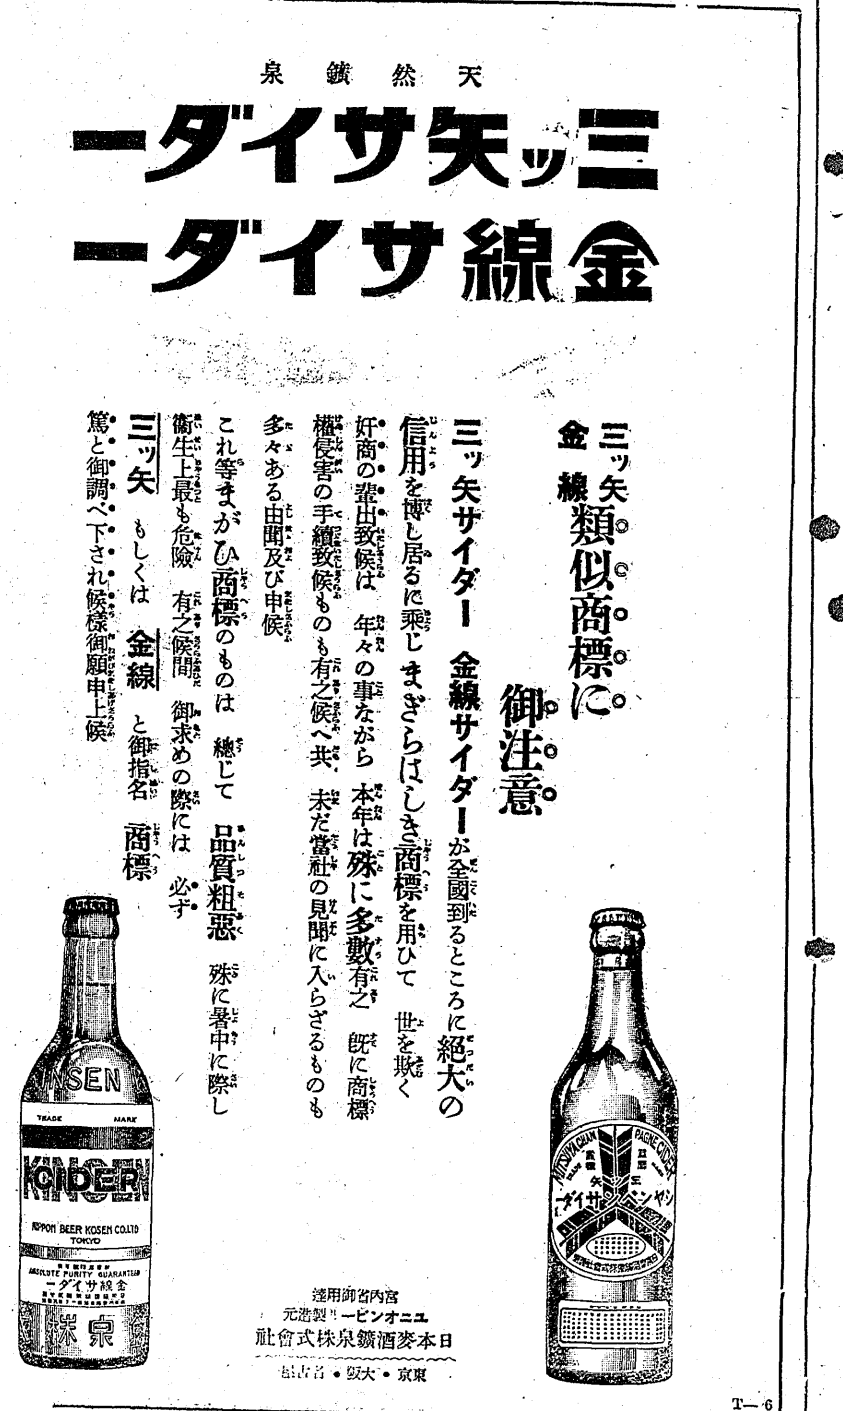 天然鑛泉
三ッ矢サイダー
金線サイダー
三ッ矢
金線
類似商標に
御注意
三ッ矢サイダー 金線サイダーが全國到るところに絕大の
信用を博し居るに乘じまぎらはしき商標を用ひて 世を欺く
奸商の輩出致候は 年々の事ながら 本年は殊に多數有之 既に商標
權侵害の手續致候ものも有之候へ共、未だ當社の見聞に入らざるものも
多々ある由聞及び申候
これ等まがひ商標のものは 總じて 品質粗惡 殊に暑中に際し
衞生上最も危險 有之候間 御求めの際には 必ず
三ッ矢 もしくは 金線 と御指名 商標
篤と御調べ下され候樣御願申上候
MITSUYA CHAMPAGNE CIDER
三矢
シヤンペンサイダー
INSEN
TRADE MARK
KINSEN
CIDER
NIPPON BEER KOSEN CO.LTD
TOKYO
ABSOLUTE PURITY GUARANTEED
金線サイダー
泉株
宮内省御用達
ユニオンビール製造元
日本麥酒鑛泉株式會社
東京・大阪・名古屋
T—6